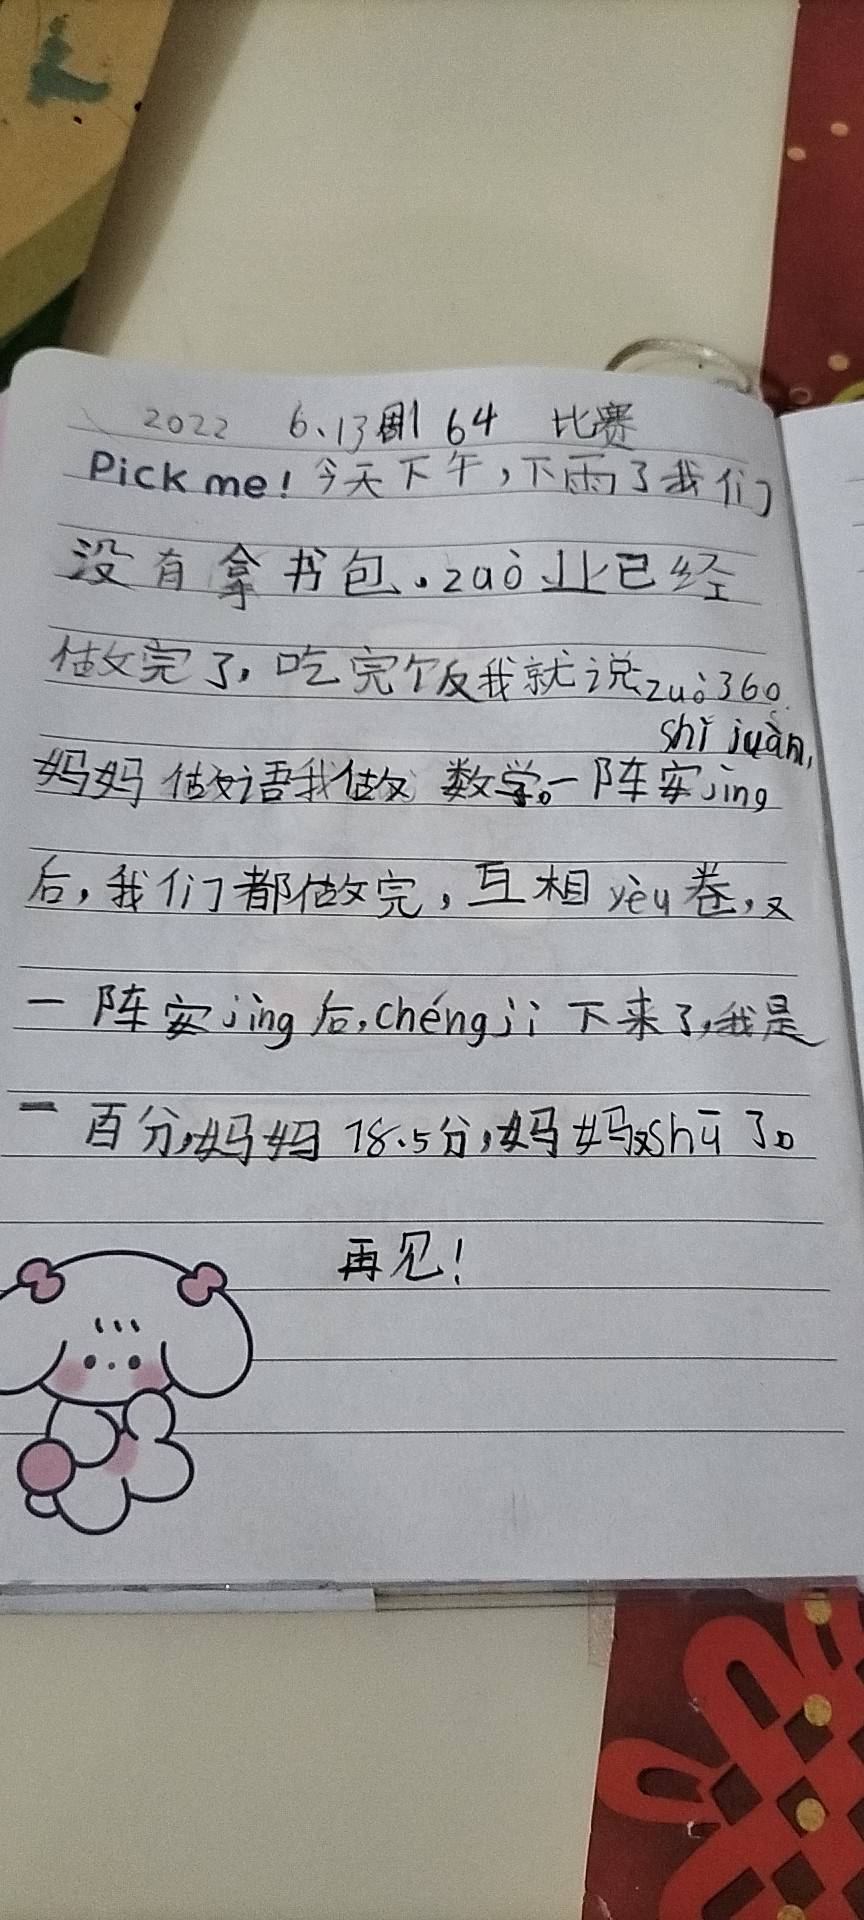 2022 6、13周1 64 比赛
Pick me! 今天下午，下雨了我们
没有拿书包。zuò业已经
做完了，吃完饭我就说zuò360
shì juàn，
妈妈做语我做数学。一阵安jìng
后，我们都做完，互相yèu卷，又
一阵安jìng后，chéngji下来了，我是
一百分，妈妈78.5分，妈妈shū了。
再见！